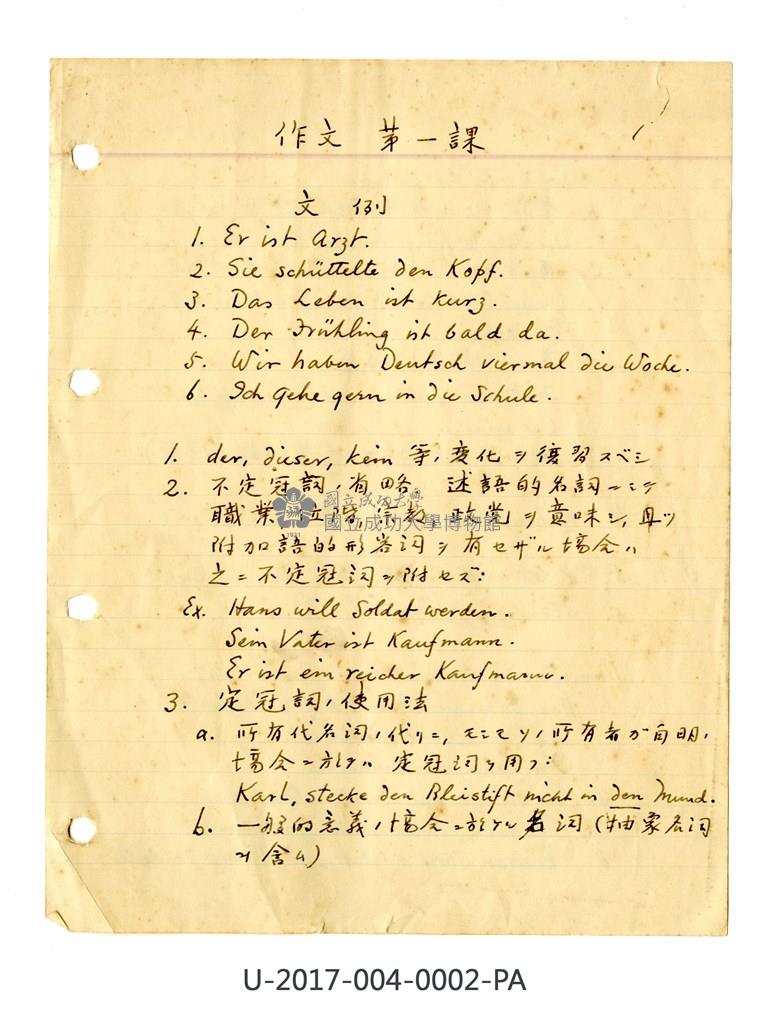 作文 第一課
文例
1. Er ist Arzt.
2. Sie schüttelte den Kopf.
3. Das Leben ist kurz.
4. Der Frühling ist bald da.
5. Wir haben Deutsch viermal die Woche.
6. Ich gehe gern in die Schule.
1. der, dieser, kein 等ノ変化ヲ復習スベシ
2. 不定冠詞ノ省略 述語的名詞ニシテ
職業 位階 宗教 政党ヲ意味シ, 且ツ
附加語的形容詞ヲ有セザル場合ハ
之ニ不定冠詞ヲ附セズ:
Ex. Hans will Soldat werden.
Sein Vater ist Kaufmann.
Er ist ein reicher Kaufmann.
3. 定冠詞ノ使用法
a. 所有代名詞ノ代リニ, ソノ所有者ガ自明ノ
場合ニ於テハ 定冠詞ヲ用フ:
Karl, stecke den Bleistift nicht in den Mund.
b. 一般的意義ノ場合ニ於ケル名詞 (抽象名詞
ヲ含ム)
國立成功大學
國立成功大學博物館
1931
U-2017-004-0002-PA